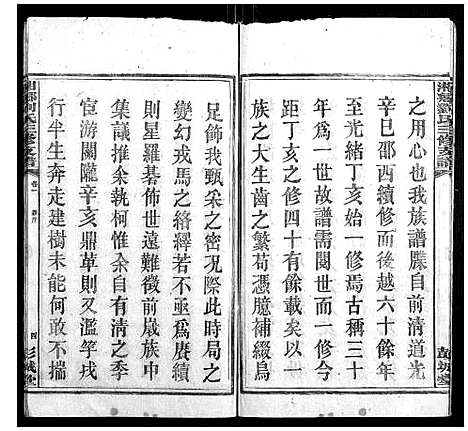 湘鄉劉氏三修支譜
彭城堂
之用心也我族譜牒自前清道光
辛巳邵西續修而後越六十餘年
至光緒丁亥始一修焉古稱三十
年爲一世故譜需閱世而一修今
距丁亥之修四十有餘載矣以一
族之大生齒之繁苟憑臆補綴烏
足飾我甄采之密况際此時局之
變幻戎馬之絡繹若不亟爲賡續
則星羅碁佈世遠難徵前歲族中
集議推余執柯惟余自有清之季
宦游關隴辛亥鼎革則又濫竽戎
行半生奔走建樹未能何敢不揣
湘鄉劉氏三修支譜
卷一
四
彭城堂